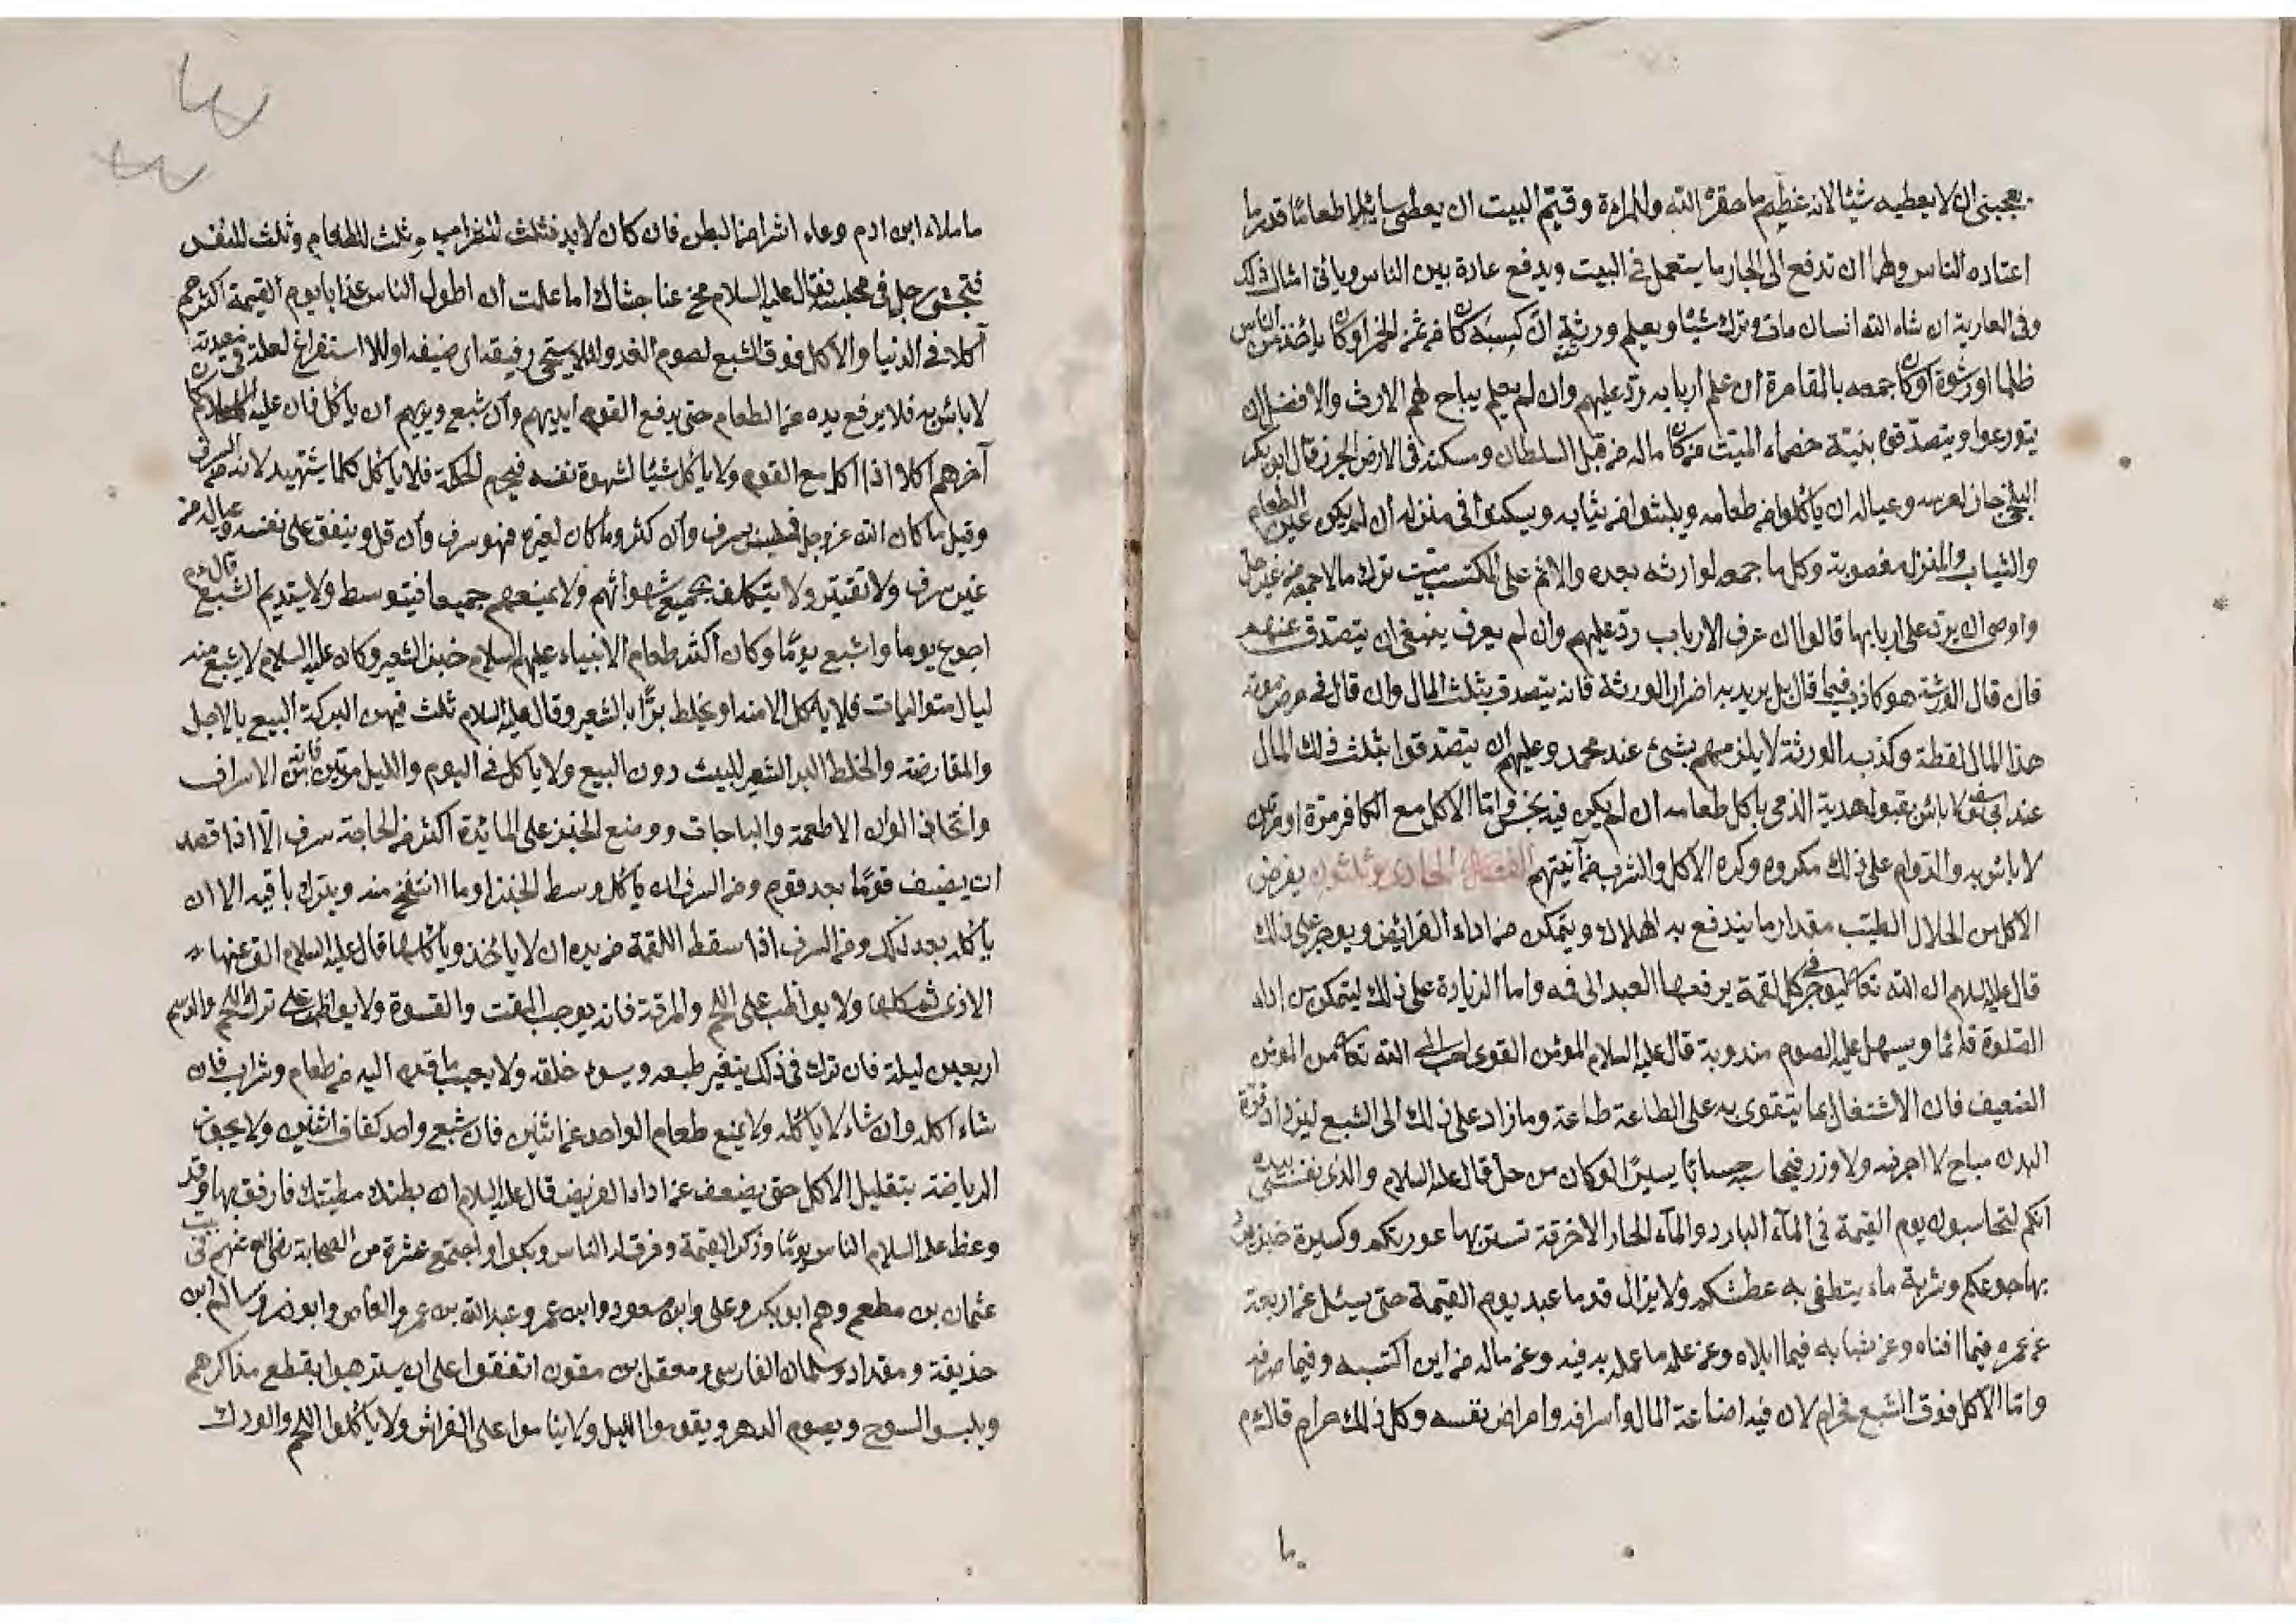 يعجبنى ان لا يعطيه شيئا لانه عظيم ما حقره الله وللمراءة وقيّم البيت ان يعطى سائلا طعاما قدر ما
اعتاده الناس ولها ان تدفع الى الجار ما يستعمل فى البيت ويدفع عادة بين الناس وياتى امثال ذلك
وفى العارية ان شاء الله انسان مات وترك شيئا ويعلم ورثته ان كسبه كان من ثمن الخمر او كان ياخذه من الناس
ظلما او رشوة او كان جمعه بالمقامرة ان علم اربابه ردّ عليهم وان لم يعلم يباح لهم الارث والافضل ان
يتورعوا ويتصدقوا بنيّة خصماء الميت من كان ماله من قبل السلطان ومسكنه فى الارض الحرز قال ابو بكر
البلخى جاز لعرسه وعياله ان ياكلوا من طعامه ويلبسوا من ثيابه ويسكنوا فى منزله ان لم يكن عين الطعام
والثياب والمنزل مغصوبة وكل ما جمعه لوارثه بعده والاثم على المكتسب ميت ترك مالا جمعه من غير حل
واوصى ان يردّ على اربابها قالوا ان عرف الارباب ردّ عليهم وان لم يعرف ينبغى ان يتصدق عنهم
فان قال الورثة هو كاذب فيما قال بل يريد به اضرار الورثة فانه يتصدق بثلث المال وان قال فى مرض موته
هذا المال لقطة وكذبه الورثة لا يلزمهم بشئ عند محمد وعليهم ان يتصدقوا بثلث ذلك المال
عند ابى يوسف لا باس بقبول هدية الذمى ياكل طعامه ان لم يكن فيه نجس واما الاكل مع الكافر مرة او مرتين
لا باس به والدوام على ذلك مكروه وكره الاكل والشرب من آنيتهم الفصل الحادى وثلثون يفرض
الاكل من الحلال الطيّب مقدار ما يندفع به الهلاك ويتمكن من اداء الفرائض ويوجر على ذلك
قال عليه السلام ان الله تعالى ليوجر فى كل لقمة يرفعها العبد الى فمه واما الزيادة على ذلك ليتمكن من اداء
الصلوة قائما ويسهل عليه الصوم مندوبة قال عليه السلام المومن القوى احب الى الله تعالى من المومن
الضعيف فان الاشتغال بما يتقوى به على الطاعة طاعة وما زاد على ذلك الى الشبع ليزداد قوة
البدن مباح لا اجر فيه ولا وزر فيحاسب حسابا يسيرا لو كان من حل قال عليه السلام والذى نفسى بيده
انكم لتحاسبون يوم القيمة فى المآء البارد والمآء الحار الا خرقة تستر بها عورتكم وكسيرة خبز
بها جوعكم وشربة ماء ينطفى به عطشكم ولا يزال قدما عبد يوم القيمة حتى يسئل عن اربعة
عن عمره فيما افناه وعن شبابه فيما ابلاه وعن علمه ما عمل به فيه وعن ماله من اين اكتسبه وفيما صرفه
واما الاكل فوق الشبع فحرام لان فيه اضاعة المال واسرافه وامراض نفسه وكل ذلك حرام قال عم
ما ملاء ابن ادم وعاء اشر من البطن فان كان لا بد فثلث للشراب وثلث للطعام وثلث للنفس
فتجشى رجل فى مجلسه فقال عليه السلام نح عنا جشاك اما علمت ان اطول الناس عذابا يوم القيمة اكثرهم
اكلا فى الدنيا والاكل فوق الشبع لصوم الغد ولئلا يستحى رفيقه اى ضيفه او للاستفراغ لعلة فى معدته
لا باس به فلا يرفع يده عن الطعام حتى يرفع القوم ايديهم وان شبع ويريهم ان ياكل فان عليه السلام كان
آخرهم اكلا اذا اكل مع القوم ولا ياكل شيئا لشهوة نفسه فيحرم الحكمة فلا ياكل كلما يشتهيه لانه من السرف
وقيل ما كان لله عز وجل فليس بسرف وان كثر وما كان لغيره فهو سرف وان قل وينفق على نفسه وعياله من
غير سرف ولا تقتير ولا يتكلف بجميع شهواتهم ولا يمنعهم جميعا فيتوسط ولا يستديم الشبع قال عم
اجوع يوما واشبع يوما وكان اكثر طعام الانبياء عليهم السلام خبز الشعير وكان عليه السلام لا يشبع منه
ليال متواليات فلا ياكل الا منه او يخلط برّا بالشعير وقال عليه السلام ثلث فيهن البركة البيع بالاجل
والمقارضة والخلط البر الشعير للبيت دون البيع ولا ياكل فى اليوم والليل مرتين فانه من الاسراف
واتخاذ الوان الاطعمة والباجات ووضع الخبز على المائدة اكثر من الحاجة سرف الّا اذا قصد
ان يضيف قوما بعد قوم ومن السرف ان ياكل وسط الخبز او ما انتفخ منه ويترك باقيه الا ان
ياكله بعد ذلك ومن السرف اذا سقط اللقمة من يده ان لا ياخذ وياكلها قال عليه السلام الق عنها
الاذى ثم كلها ولا يواظب على اللحم والمرقة فانه يوجب المقت والقسوة ولا يواظب على ترك اللحم والدسم
اربعين ليلة فان ترك فى ذلك يتغير طبعه ويسوء خلقه ولا يعيب ما قدم اليه من طعام وشراب فان
شاء اكله وان شاء لا ياكله ولا يمنع طعام الواحد عن اثنين فان شبع واحد كفاف اثنين ولا يجوز
الرياضة بتقليل الاكل حتى يضعف عن اداء الفريض قال عليه السلام ان بطنك مطيتك فارفق بها وقد
وعظ عليه السلام الناس يوما وذكر القيمة وفرق له الناس وبكوا واجتمع عشرة من الصحابة رضى الله عنهم فى بيت
عثمان بن مطعم وهم ابو بكر وعلى وابن مسعود وابن عمر وعبد الله بن عمر والعاص وابو ذر وسالم ابن
حذيفة ومقداد وسلمان الفارسى ومعقل بن مقون اتفقوا على ان يترهبوا بقطع مذاكرهم
ويلبسوا المسوح ويصوم الدهر ويقوموا الليل ولا يناموا على الفراش ولا ياكلوا اللحم والودك